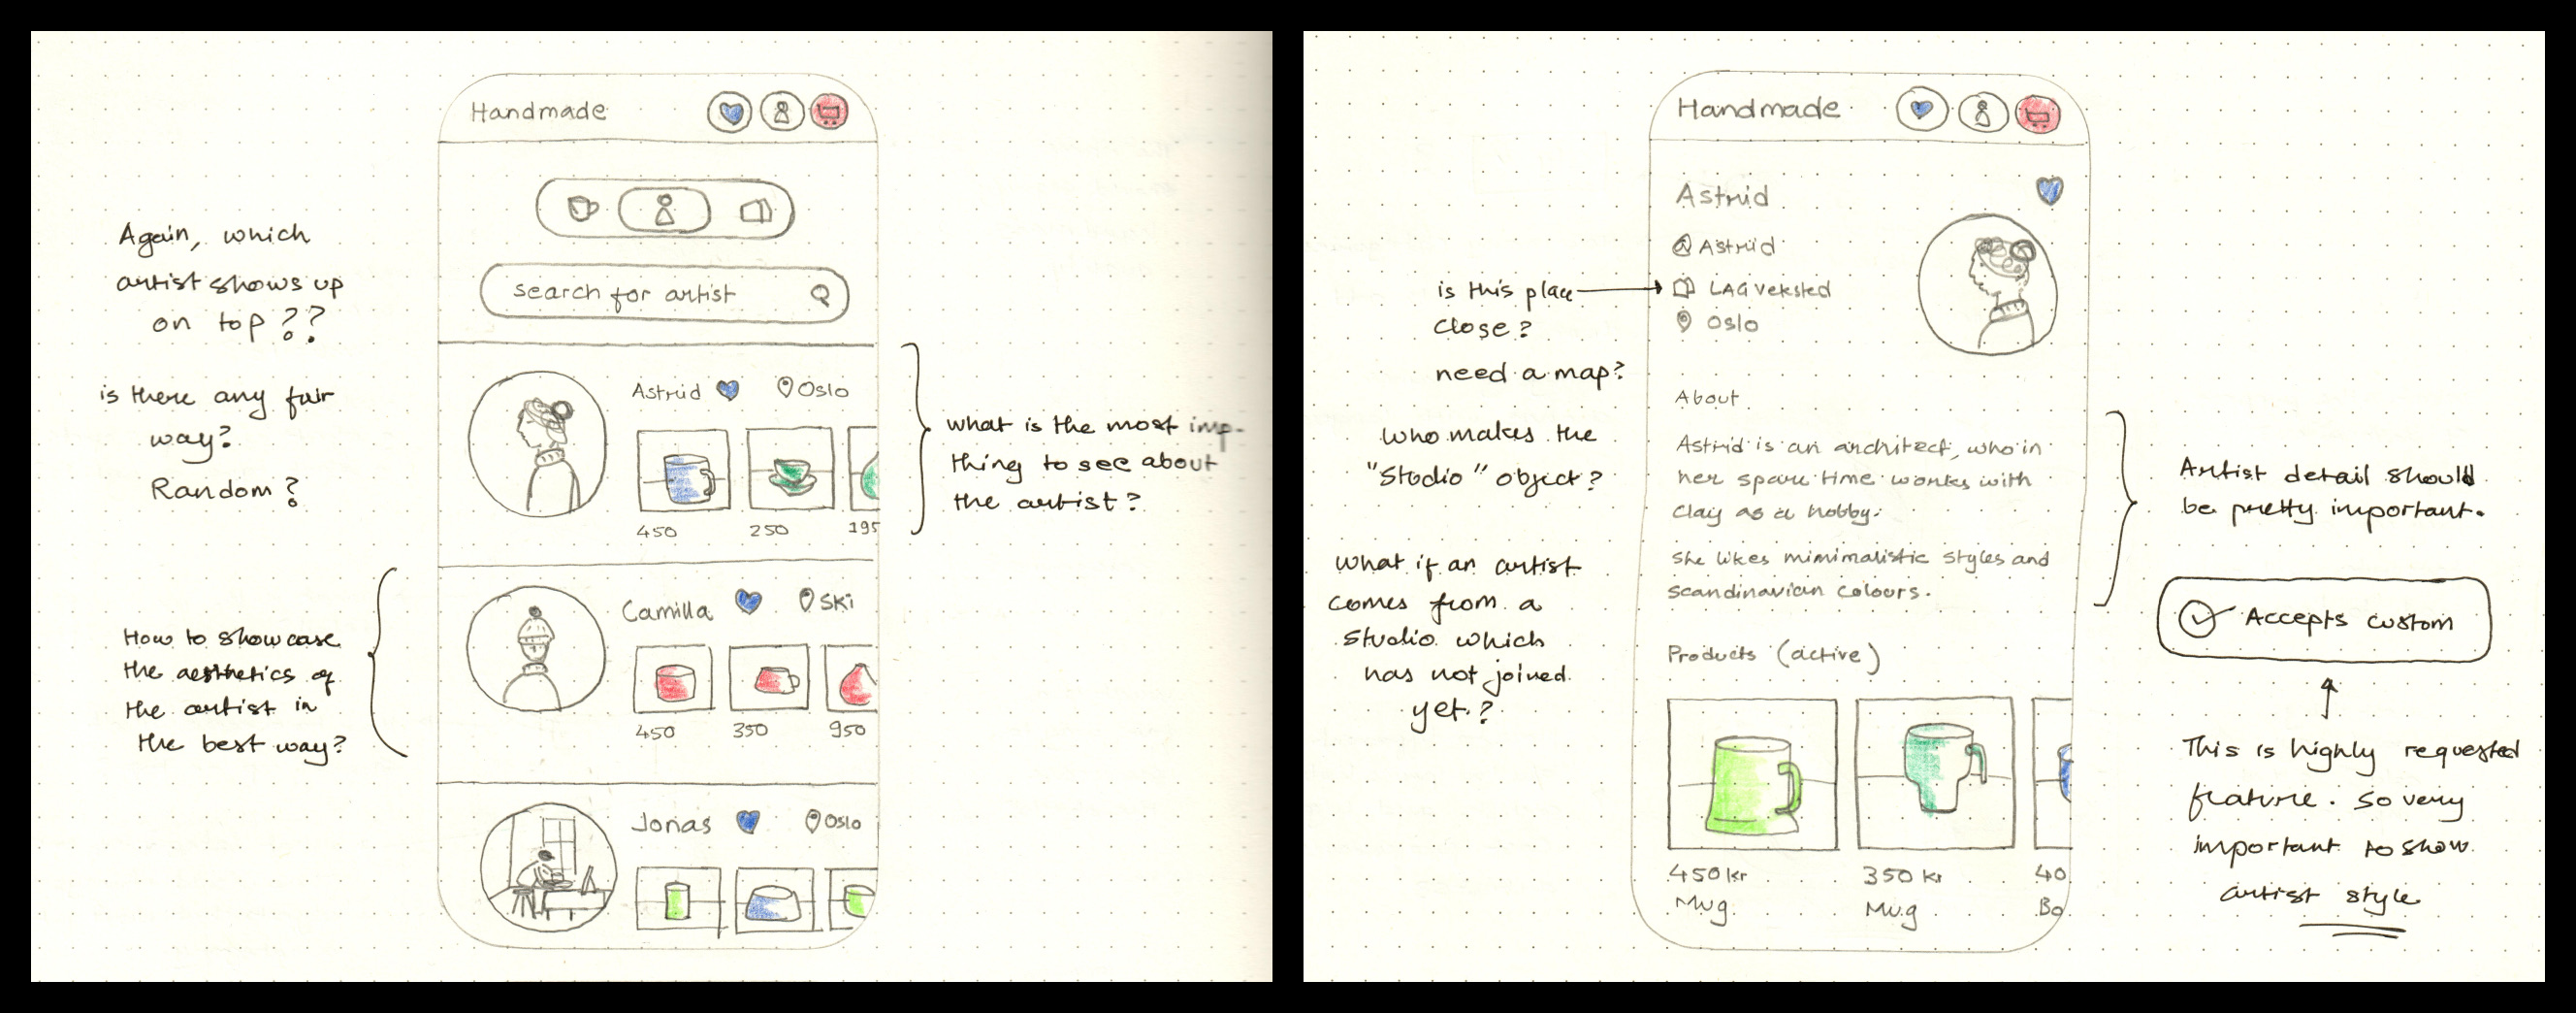 Handmade
search for artist
Astrid Oslo
450 250 195
Camilla Ski
450 350 950
Jonas Oslo
Again, which
artist shows up
on top??
is there any fair
way?
Random?
How to showcase
the aesthetics of
the artist in
the best way?
what is the most imp-
thing to see about
the artist?
Handmade
Astrid
Astrid
LAG veksted
Oslo
About
Astrid is an architect, who in
her spare time works with
clay as a hobby.
She likes mimimalistic styles and
scandinavian colours.
Products (active)
450 kr 350 kr 40
Mug Mug Bo
is this place
close?
need a map?
who makes the
"Studio" object?
what if an artist
comes from a
studio which
has not joined
yet?
Artist detail should
be pretty important.
Accepts custom
This is highly requested
feature. So very
important to show
artist style